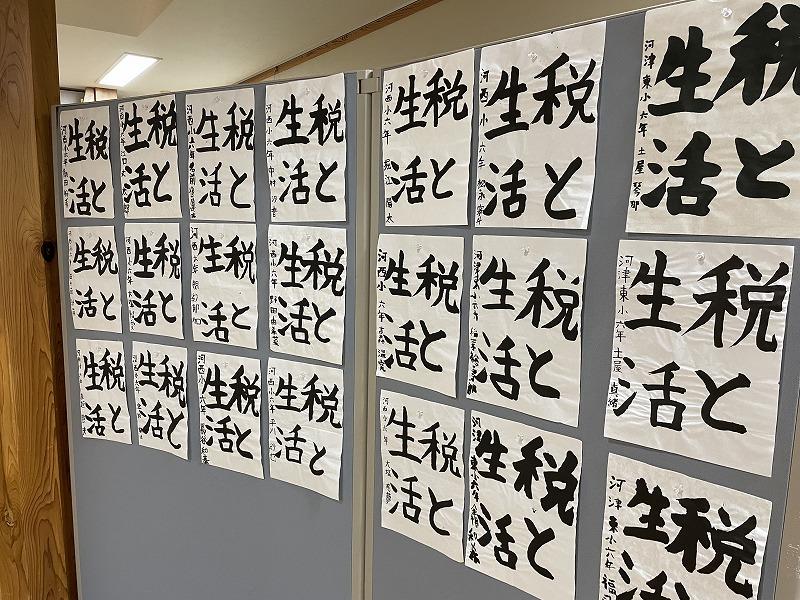 税と
生活
河西小六年
税と
生活
税と
生活
河西小六年
税と
生活
河西小六年 中村
税と
生活
税と
生活
河西小六年
税と
生活
税と
生活
河西小六年 野田
税と
生活
税と
生活
税と
生活
税と
生活
河西小六年
税と
生活
河西小六年 堀江 陽太
税と
生活
河西小 六年
税と
生活
河津東小 六年 土屋 琴那
税と
生活
河西小 六年
税と
生活
河津東小六年
税と
生活
河津東小 六年 土屋
税と
生活
河西小 六年
税と
生活
河津東小六年
税
生活
河津東小六年